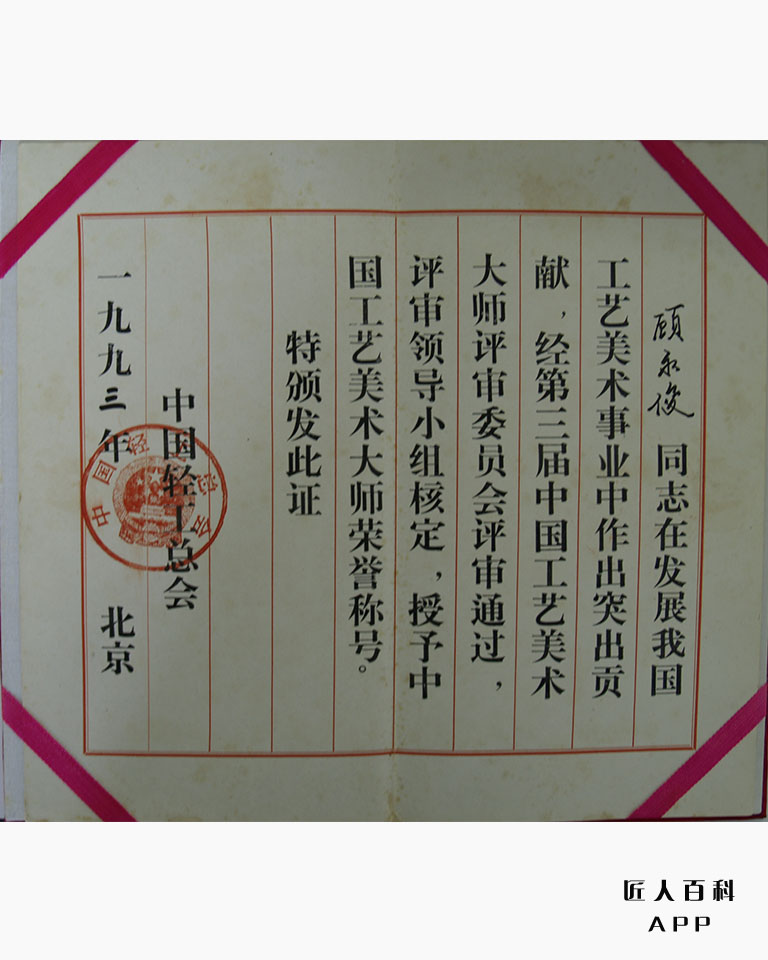 顾永俊 同志在发展我国
工艺美术事业中作出突出贡
献，经第三届中国工艺美术
大师评审委员会评审通过，
评审领导小组核定，授予中
国工艺美术大师荣誉称号。
特颁发此证
中国轻工总会
一九九三年 北京
中国轻工总会
匠人百科
APP